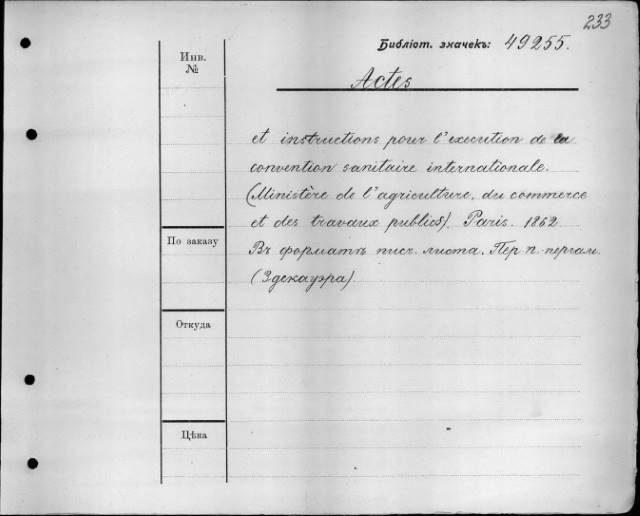 233
Библіот. значекъ: 49255.
Инв.
№
Actes
et instructions pour l'execution de la
convention sanitaire internationale.
(Ministère de l'agriculture, du commerce
et des travaux publics). Paris. 1862
Въ форматъ писч. листа. Пер. п. пергам.
(Здекауэра)
По заказу
Откуда
Цѣна